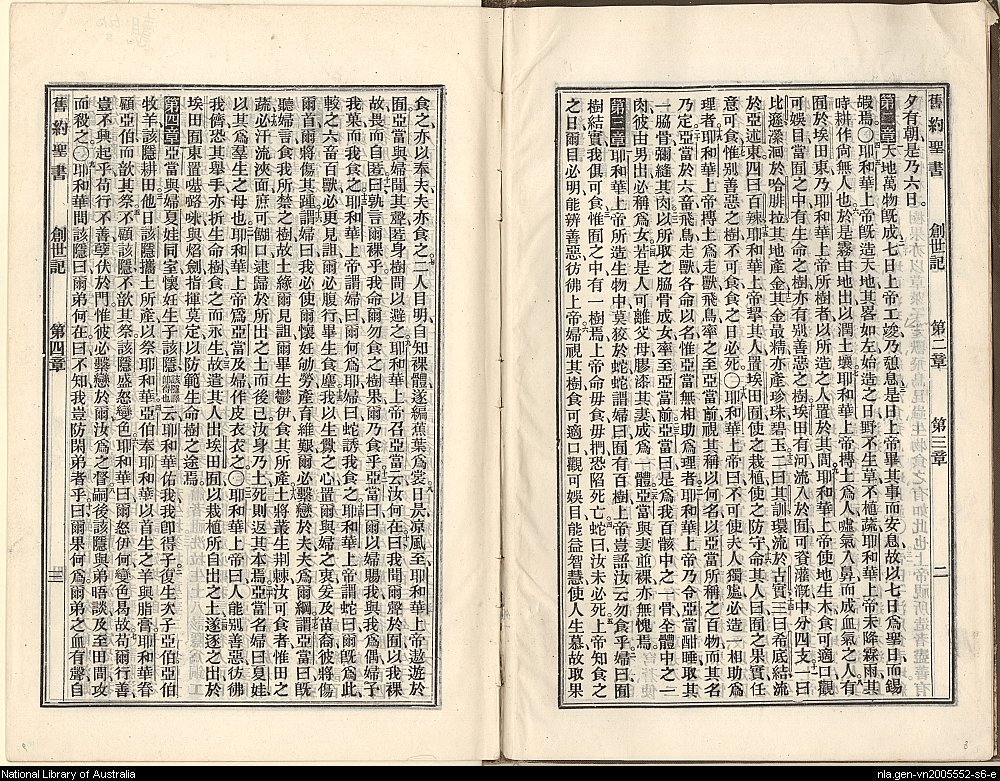 舊約聖書 創世記 第二章 第三章 二
夕有朝是乃六日。
第二章天地萬物旣成七日上帝工竣乃憩息是日上帝畢其事而安息故以七日爲聖日而錫
嘏焉〇耶和華上帝旣造天地其畧如左始造之日野不生草不植蔬耶和華上帝未降霖雨其
時耕作尙無人也於是霧由地出以潤土壤耶和華上帝摶土爲人噓氣入鼻而成血氣之人有
囿於埃田東乃耶和華上帝所樹者以所造之人置於其間耶和華上帝使地生木食可適口觀
可娛目當囿之中有生命之樹亦有別善惡之樹埃田有河流入於囿可資灌漑中分四支一曰
比遜瀠洄於哈腓拉其地產金其金最精亦產珍珠碧玉二曰其訓環流於古實三曰希底結流
於亞述東四曰百辣耶和華上帝挈其人置埃田囿使之栽植使之防守命其人曰囿之果實任
意可食惟別善惡之樹不可食食之日必死〇耶和華上帝曰不可使夫人獨處必造一相助爲
理者耶和華上帝摶土爲走獸飛鳥率之至亞當前視其稱以何名以亞當所稱之百物而其名
乃定亞當於六畜飛鳥走獸各命以名惟亞當無相助爲理者耶和華上帝乃令亞當酣睡取其
一脇骨彌縫其肉以所取之脇骨成女率至亞當前亞當曰是爲我百骸中之一骨全體中之一
肉彼由男出必稱爲女若是人可離父母膠漆其妻成爲一體亞當與妻並裸亦無愧焉
第三章耶和華上帝所造生物中莫狡於蛇蛇謂婦曰囿有百樹上帝豈語汝云勿食乎婦曰囿
樹結實我俱可食惟囿之中有一樹焉上帝命毋食毋捫恐陷死亡蛇曰汝未必死上帝知食之
之日爾目必明能辨善惡彷彿上帝婦視其樹食可適口觀可娛目能益智慧使人生慕故取果
食之亦以奉夫夫亦食之二人目明自知裸體遂編蕉葉爲裳日景凉風至耶和華上帝遨遊於
囿亞當與婦聞其聲匿身樹間以避之耶和華上帝召亞當云汝何在曰我聞爾聲於囿以我裸
故畏而自匿曰孰言爾裸乎我命爾勿食之樹果爾乃食乎亞當曰爾以婦賜我與我爲偶婦予
我菓而我食之耶和華上帝謂婦曰爾何爲耶婦曰蛇誘我食之耶和華上帝謂蛇曰爾旣爲此
較之六畜百獸必更見詛爾必腹行畢生食塵我以生釁之心置爾與婦之衷爰及苗裔彼將傷
爾首爾將傷其踵謂婦曰我必使爾懷妊劬勞產育維艱爾必繫戀於夫夫爲爾綱謂亞當曰旣
聽婦言食我所禁之樹故土緣爾見詛爾畢生鬱伊食其所產土將叢生荆棘汝可食者惟田之
蔬必汗流浹面庶可餬口逮歸於所出之土而後已汝身乃土死則返其本焉亞當名婦曰夏娃
以其爲羣生之母也耶和華上帝爲亞當及婦作皮衣衣之〇耶和華上帝曰人能別善惡彷彿
我儕恐其舉手亦折生命樹食之而永生故遣其人出埃田囿以栽植所自出之土遂逐之出於
埃田囿東置𠼻嚧咏與焰劍指揮莫定以防範生命樹之途焉
第四章亞當與婦夏娃同室懷妊生子該隱該隱譯卽得也云耶和華佑我我卽得子復生次子亞伯亞伯
牧羊該隱耕田他日該隱攜土所產以祭耶和華亞伯奉耶和華以首生之羊與脂膏耶和華眷
顧亞伯而歆其祭不顧該隱不歆其祭該隱盛怒變色耶和華曰爾怒伊何變色曷故苟爾行善
豈不興起乎苟行不善孽伏於門惟彼必繫戀於爾汝爲之督嗣後該隱與弟晤談及至田間攻
而殺之〇耶和華問該隱曰爾弟何在曰不知我豈防閑弟者乎曰爾果何爲爾弟之血有聲自
舊約聖書 創世記 第四章 三
National Library of Australia
nla.gen-vn2005552-s6-e